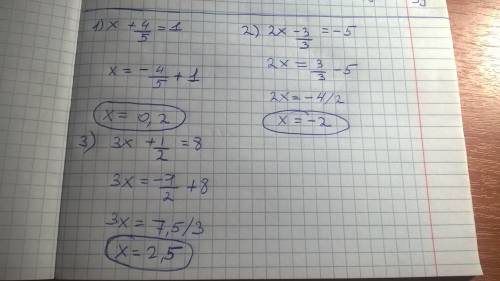 1) x + 4/5 = 1
x = - 4/5 + 1
x = 0,2
2) 2x - 3/3 = -5
2x = 3/3 - 5
2x = -4/2
x = -2
3) 3x + 1/2 = 8
3x = -1/2 + 8
3x = 7,5/3
x = 2,5